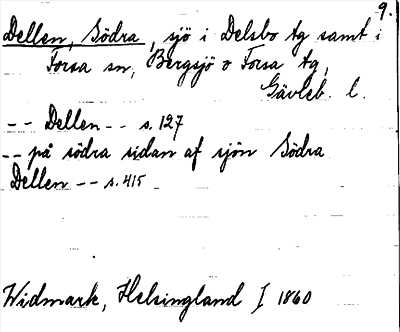 9.
Dellen, Södra, sjö i Delsbo tg samt i
Forsa sn, Bergsjö o Forsa tg,
Gävleb. l.
-- Dellen -- s. 127
-- på södra sidan af sjön Södra
Dellen -- s. 415
Widmark, Helsingland I 1860